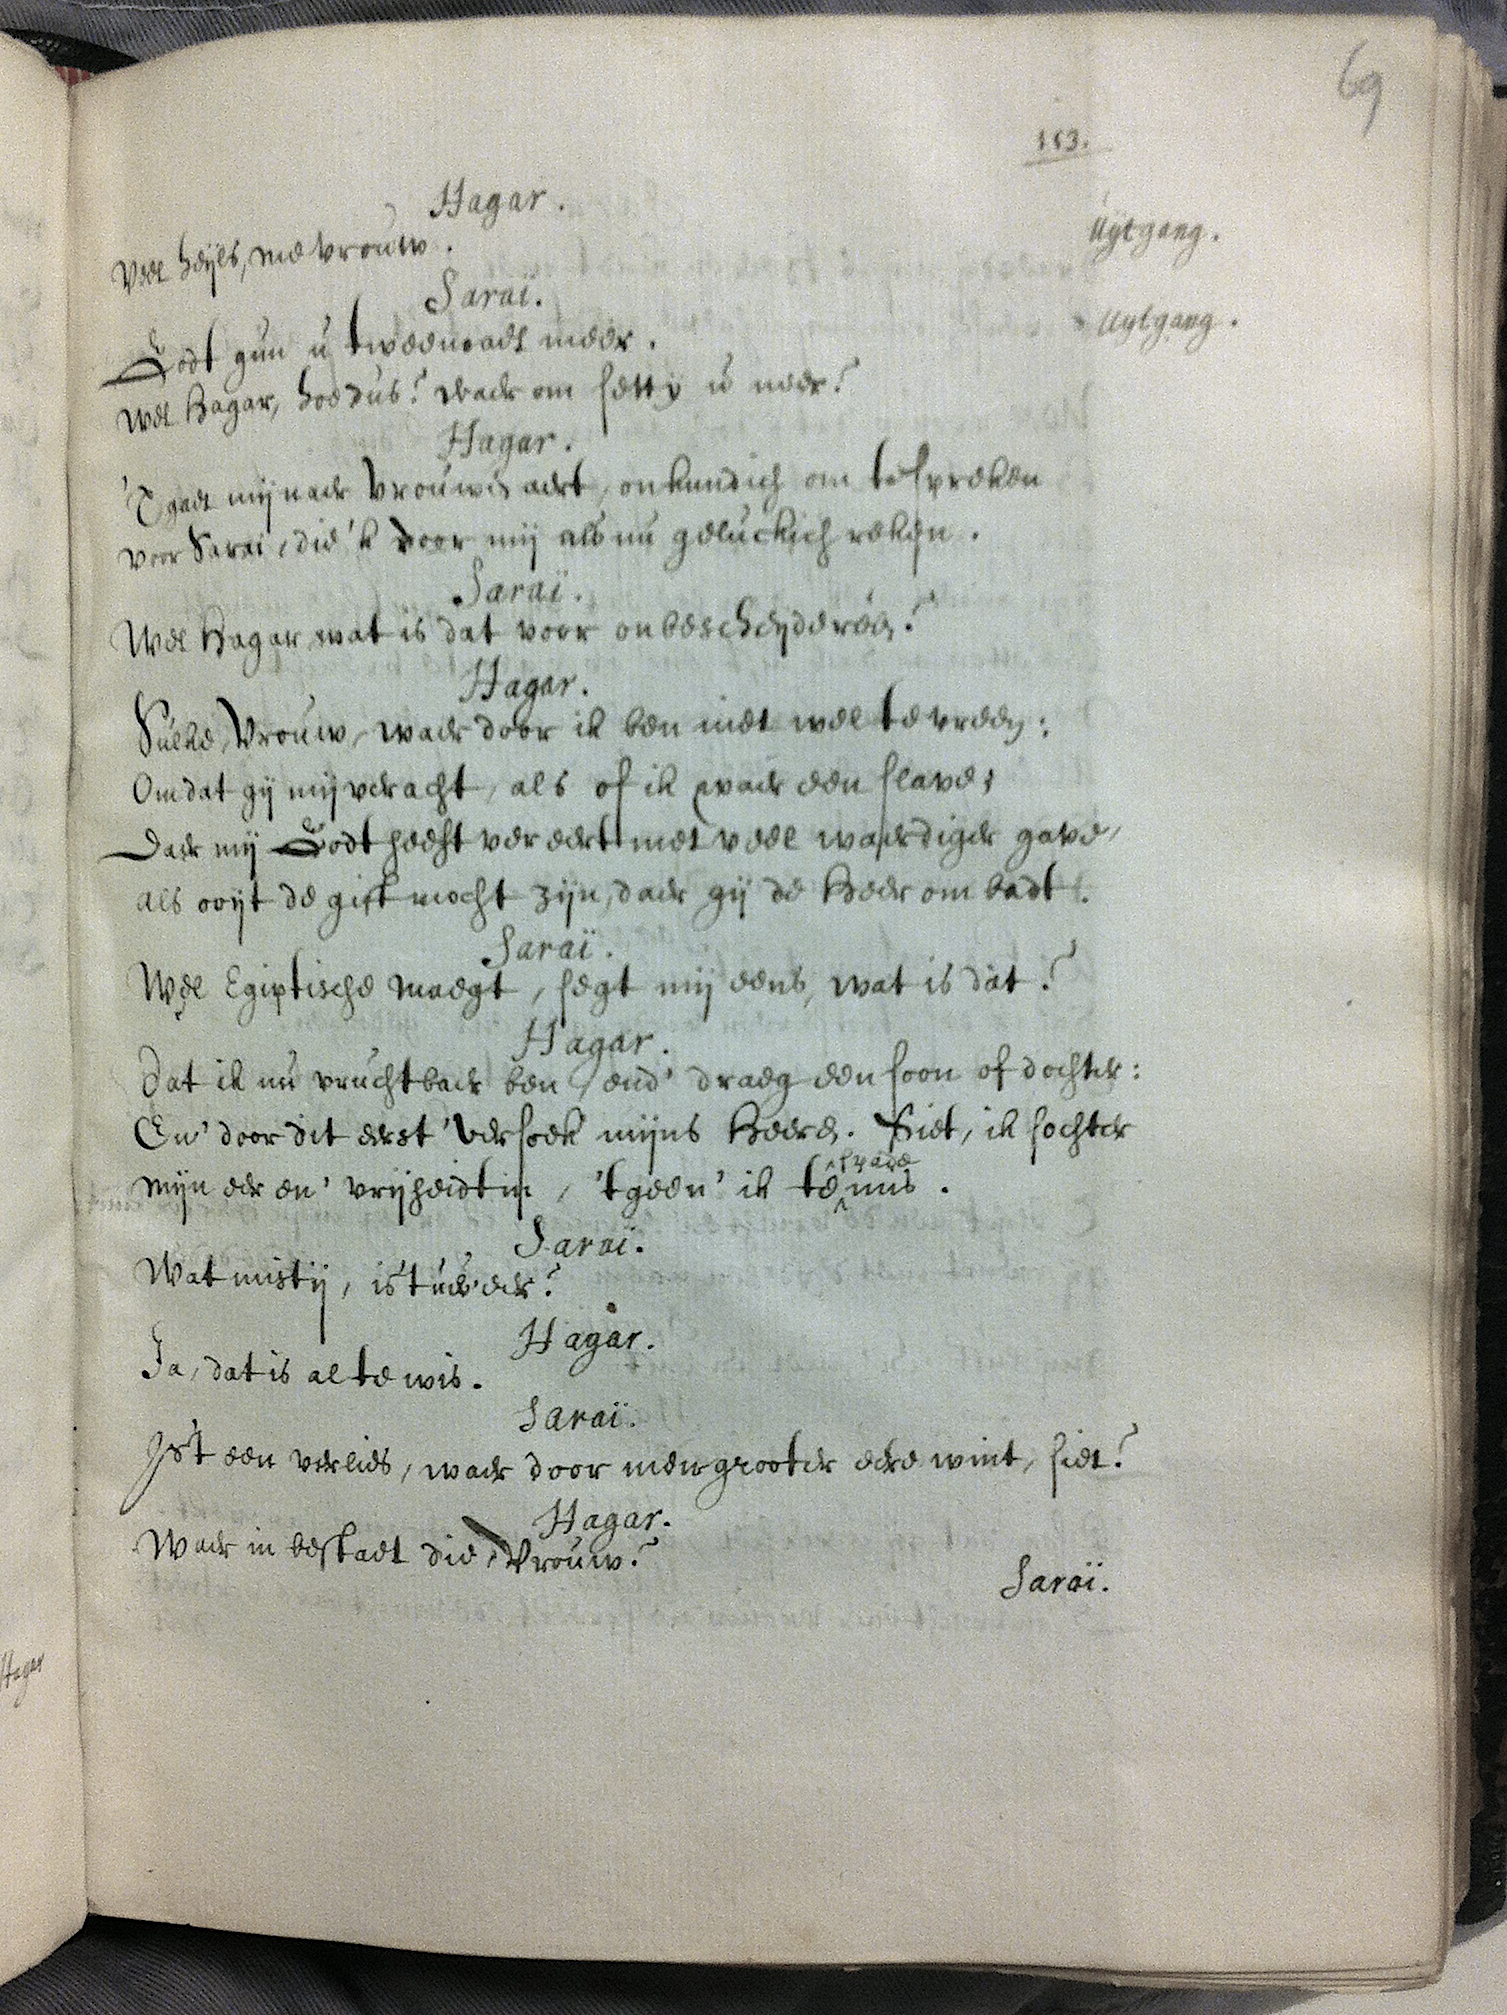 69
153.
Hagar.
Uytgang.
Veel heijls, me vrouw.
Saraï.
Uytgang.
Godt gun u tweemaels meer.
Wel Hagar, hoe dus? waer om setty u neer?
Hagar.
'T gaet mij naer vrouwen aert, onkundich om te spreken
voor Sarai, die 'k voor mij als nu geluckich reken.
Saraï.
Wel Hagar, wat is dat voor onbescheyde reén?
Hagar.
Sulke, Vrouw, waer door ik ben niet wel te vreen:
Omdat gij mij veracht, als of ik waer een slave;
Daer mij Godt heeft vereert met veel waerdiger gave,
als ooijt de gift mocht zijn, daer gij de Heer om badt.
Saraï.
Wel Egiptische maegt, segt mij eens, wat is dat?
Hagar.
Dat ik nu vruchtbaer ben, end' draeg een soon of dochter:
En' door dit eerst versoek mijns Heere. Siet, ik sochter
mijn eer en' vrijheidt in, 't geen' ik te spade mis.
Saraï.
Wat mistij, is't uw' eer?
Hagar.
Ja, dat is al te wis.
Saraï.
Is't een verlies, waer door men grooter eere wint, siet?
Hagar.
Waer in bestaet die, Vrouw?
Saraï.
Hagar